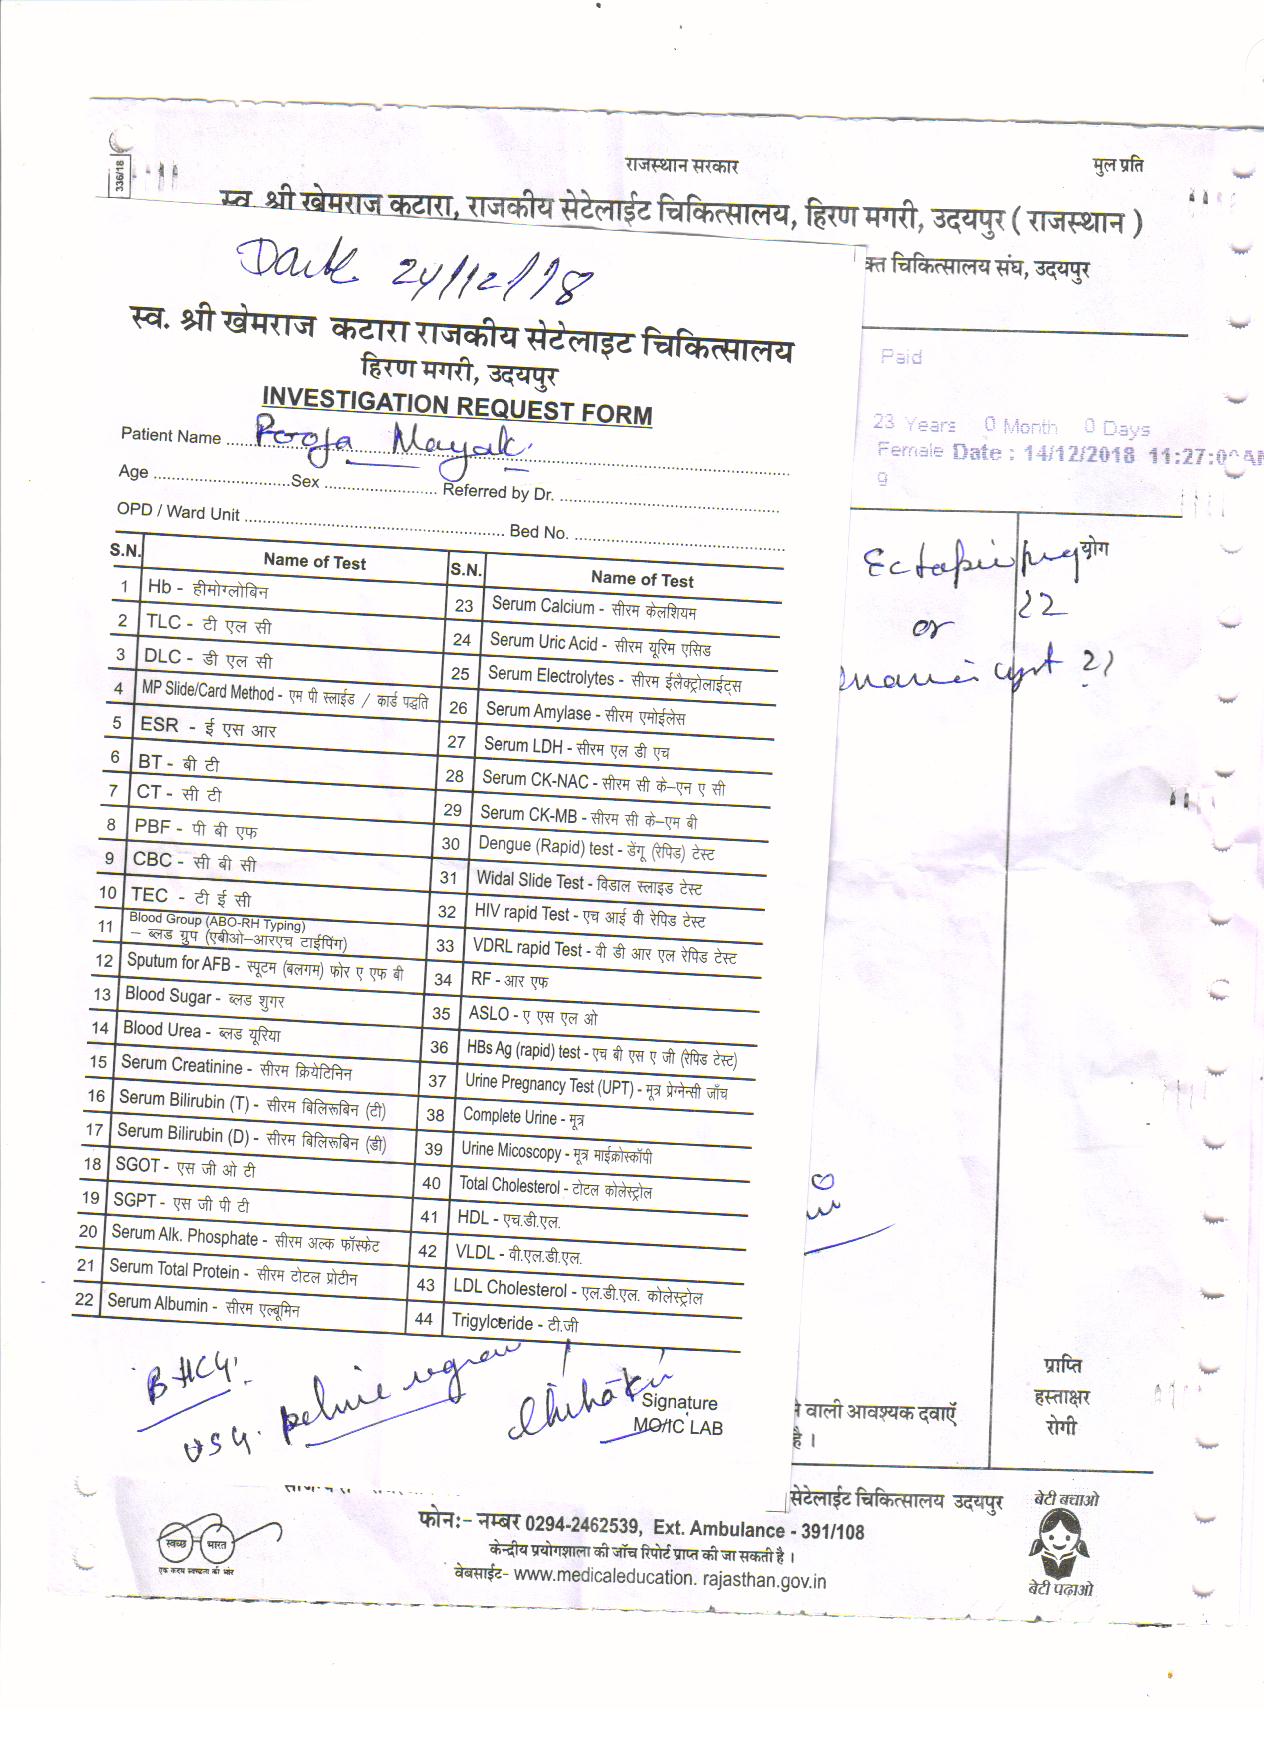 336/18
राजस्थान सरकार
मुल प्रति
स्व. श्री खेमराज कटारा, राजकीय सेटेलाईट चिकित्सालय, हिरण मगरी, उदयपुर ( राजस्थान )
चिकित्सालय संघ, उदयपुर
Paid
23 Years 0 Month 0 Days
Female Date : 14/12/2018 11:27:0
9
योग
Ectopic
or
cyst ??
24/12/18
स्व. श्री खेमराज कटारा राजकीय सेटेलाइट चिकित्सालय
हिरण मगरी, उदयपुर
INVESTIGATION REQUEST FORM
Patient Name Pooja
Age Sex Referred by Dr.
OPD / Ward Unit Bed No.
S.N. Name of Test S.N. Name of Test
1 Hb - हीमोग्लोबिन 23 Serum Calcium - सीरम केलशियम
2 TLC - टी एल सी 24 Serum Uric Acid - सीरम यूरिम एसिड
3 DLC - डी एल सी 25 Serum Electrolytes - सीरम ईलैक्ट्रोलाईट्स
4 MP Slide/Card Method - एम पी स्लाईड / कार्ड पद्धति 26 Serum Amylase - सीरम एमोईलेस
5 ESR - ई एस आर 27 Serum LDH - सीरम एल डी एच
6 BT - बी टी 28 Serum CK-NAC - सीरम सी के–एन ए सी
7 CT - सी टी 29 Serum CK-MB - सीरम सी के–एम बी
8 PBF - पी बी एफ 30 Dengue (Rapid) test - डेंगू (रेपिड) टेस्ट
9 CBC - सी बी सी 31 Widal Slide Test - विडाल स्लाइड टेस्ट
10 TEC - टी ई सी 32 HIV rapid Test - एच आई वी रेपिड टेस्ट
11 Blood Group (ABO-RH Typing) – ब्लड ग्रुप (एबीओ–आरएच टाईपिंग) 33 VDRL rapid Test - वी डी आर एल रेपिड टेस्ट
12 Sputum for AFB - स्पूटम (बलगम) फोर ए एफ बी 34 RF - आर एफ
13 Blood Sugar - ब्लड शुगर 35 ASLO - ए एस एल ओ
14 Blood Urea - ब्लड यूरिया 36 HBs Ag (rapid) test - एच बी एस ए जी (रेपिड टेस्ट)
15 Serum Creatinine - सीरम क्रियेटिनिन 37 Urine Pregnancy Test (UPT) - मूत्र प्रेग्नेन्सी जाँच
16 Serum Bilirubin (T) - सीरम बिलिरूबिन (टी) 38 Complete Urine - मूत्र
17 Serum Bilirubin (D) - सीरम बिलिरूबिन (डी) 39 Urine Micoscopy - मूत्र माईक्रोस्कॉपी
18 SGOT - एस जी ओ टी 40 Total Cholesterol - टोटल कोलेस्ट्रोल
19 SGPT - एस जी पी टी 41 HDL - एच.डी.एल.
20 Serum Alk. Phosphate - सीरम अल्क फॉस्फेट 42 VLDL - वी.एल.डी.एल.
21 Serum Total Protein - सीरम टोटल प्रोटीन 43 LDL Cholesterol - एल.डी.एल. कोलेस्ट्रोल
22 Serum Albumin - सीरम एल्बूमिन 44 Trigylceride - टी.जी
B HCG
USG. pelvic
Signature
MO/IC LAB
प्राप्ति
हस्ताक्षर
रोगी
वाली आवश्यक दवाएँ
है ।
सेटेलाईट चिकित्सालय उदयपुर
फोनः– नम्बर 0294-2462539, Ext. Ambulance - 391/108
केन्द्रीय प्रयोगशाला की जाँच रिपोर्ट प्राप्त की जा सकती है ।
वेबसाईट– www.medicaleducation. rajasthan.gov.in
स्वच्छ भारत
एक कदम स्वच्छता की ओर
बेटी बचाओ
बेटी पढ़ाओ